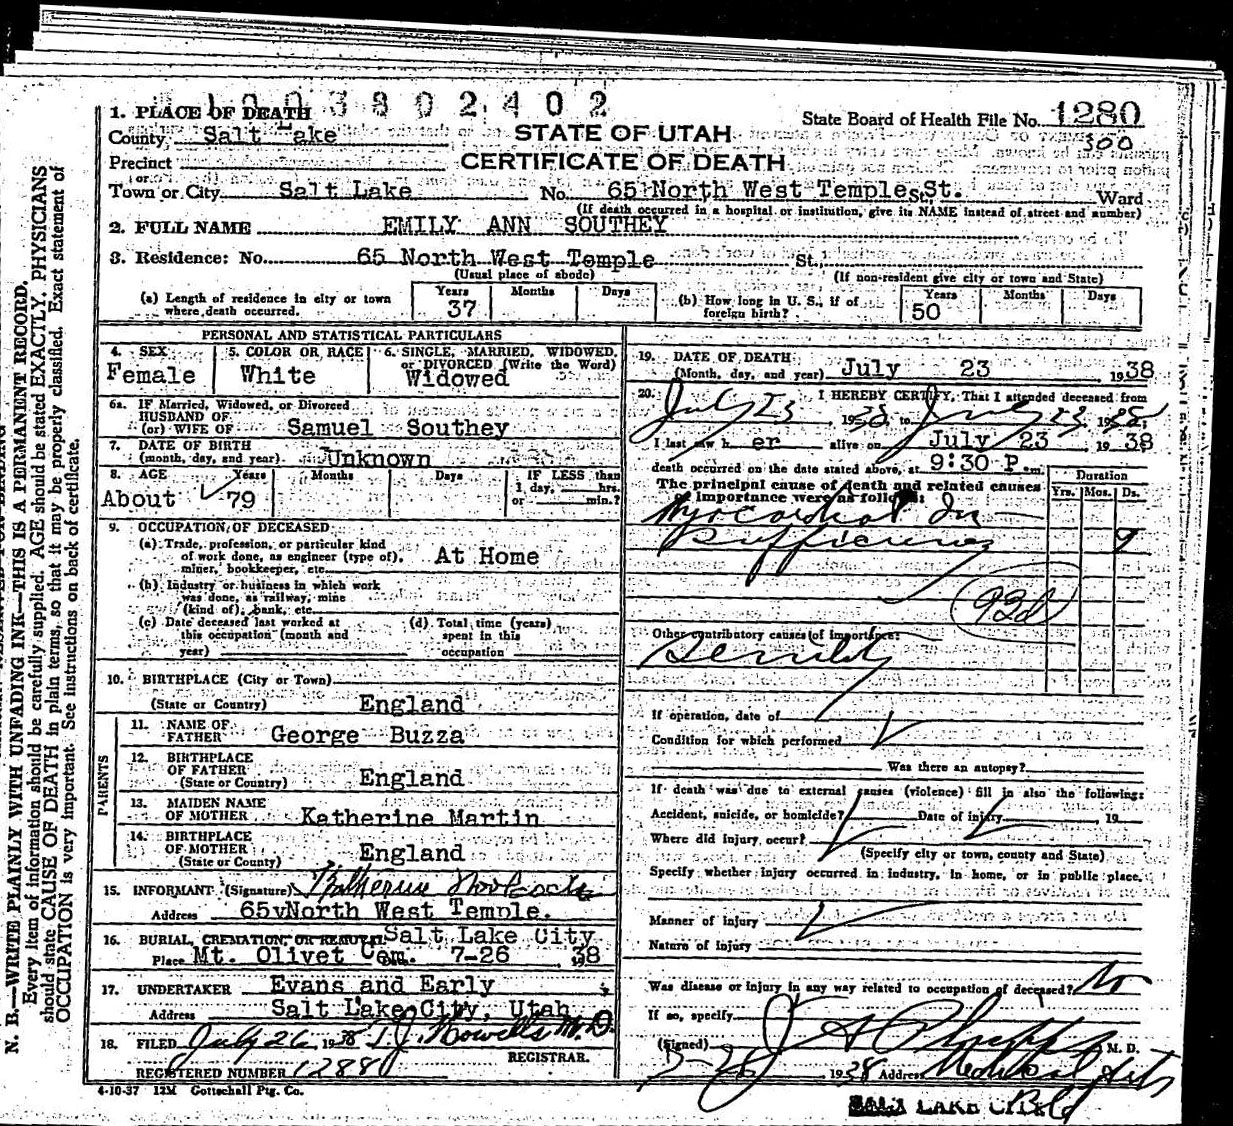 1003802402
1. PLACE OF DEATH
State Board of Health File No. 1280
300
County Salt Lake
STATE OF UTAH
Precinct
CERTIFICATE OF DEATH
or
Town or City Salt Lake No. 65 North West Temple St. St. Ward
(If death occurred in a hospital or institution, give its NAME instead of street and number)
2. FULL NAME EMILY ANN SOUTHEY
3. Residence: No. 65 North West Temple St.
(Usual place of abode) (If non-resident give city or town and State)
(a) Length of residence in city or town where death occurred. Years 37 Months Days
(b) How long in U. S., if of foreign birth? Years 50 Months Days
PERSONAL AND STATISTICAL PARTICULARS
4. SEX Female
5. COLOR OR RACE White
6. SINGLE, MARRIED, WIDOWED, or DIVORCED (Write the Word) Widowed
6a. IF Married, Widowed, or Divorced
HUSBAND OF
(or) WIFE OF Samuel Southey
7. DATE OF BIRTH
(month, day, and year) Unknown
8. AGE Years Months Days IF LESS than
1 day, hrs.
or min.?
About 79
9. OCCUPATION OF DECEASED
(a) Trade, profession, or particular kind
of work done, as engineer (type of), At Home
miner, bookkeeper, etc.
(b) Industry or business in which work
was done, as railway, mine
(kind of), bank, etc.
(c) Date deceased last worked at
this occupation (month and
year)
(d) Total time (years)
spent in this
occupation
10. BIRTHPLACE (City or Town)
(State or Country) England
PARENTS
11. NAME OF
FATHER George Buzza
12. BIRTHPLACE
OF FATHER
(State or Country) England
13. MAIDEN NAME
OF MOTHER Katherine Martin
14. BIRTHPLACE
OF MOTHER
(State or County) England
15. INFORMANT (Signature) Katherine
Address 65 North West Temple.
16. BURIAL, CREMATION, OR REMOVAL Salt Lake City
Place Mt. Olivet Cem. 7-26 1938
17. UNDERTAKER Evans and Early
Address Salt Lake City, Utah
18. FILED July 26 1938 T. J. Howells M.D.
REGISTRAR.
REGISTERED NUMBER 1288
4-10-37 12M Gottschall Ptg. Co.
19. DATE OF DEATH
(Month, day, and year) July 23 1938
20. I HEREBY CERTIFY, That I attended deceased from
July 23 1938, to July 23 1938,
I last saw her alive on July 23 1938
death occurred on the date stated above, at 9:30 P m.
The principal cause of death and related causes
of importance were as follows:
Duration
Yrs. Mos. Ds.
Myocardial In
sufficiency 9
92d
Other contributory causes of importance:
Senility
If operation, date of
Condition for which performed
Was there an autopsy?
If death was due to external causes (violence) fill in also the following:
Accident, suicide, or homicide? Date of injury 19
Where did injury occur?
(Specify city or town, county and State)
Specify whether injury occurred in industry, in home, or in public place.
Manner of injury
Nature of injury
Was disease or injury in any way related to occupation of deceased? No
If so, specify
(Signed) J A Phipps M. D.
7-26 1938 Address Medical Arts
SALT LAKE CITY Bld
N. B.—WRITE PLAINLY WITH UNFADING INK—THIS IS A PERMANENT RECORD.
Every item of information should be carefully supplied. AGE should be stated EXACTLY. PHYSICIANS
should state CAUSE OF DEATH in plain terms, so that it may be properly classified. Exact statement of
OCCUPATION is very important. See instructions on back of certificate.